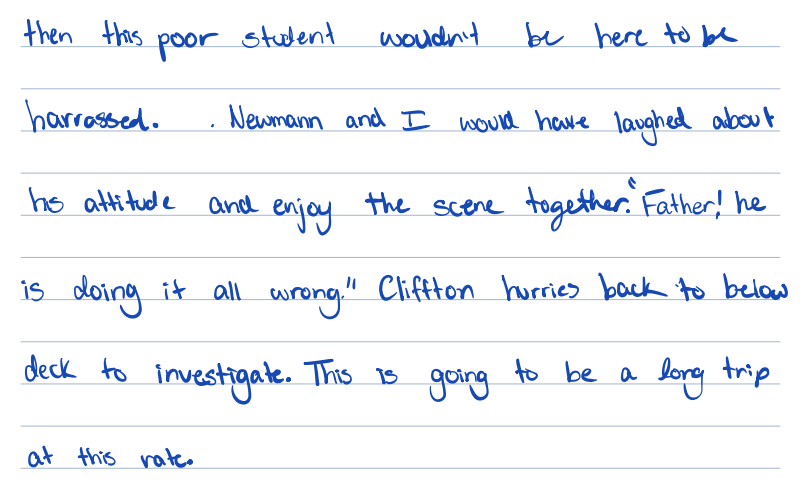 then this poor student wouldn't be here to be
harrassed. . Newmann and I would have laughed about
his attitude and enjoy the scene together. "Father! he
is doing it all wrong." Cliffton hurries back to below
deck to investigate. This is going to be a long trip
at this rate.